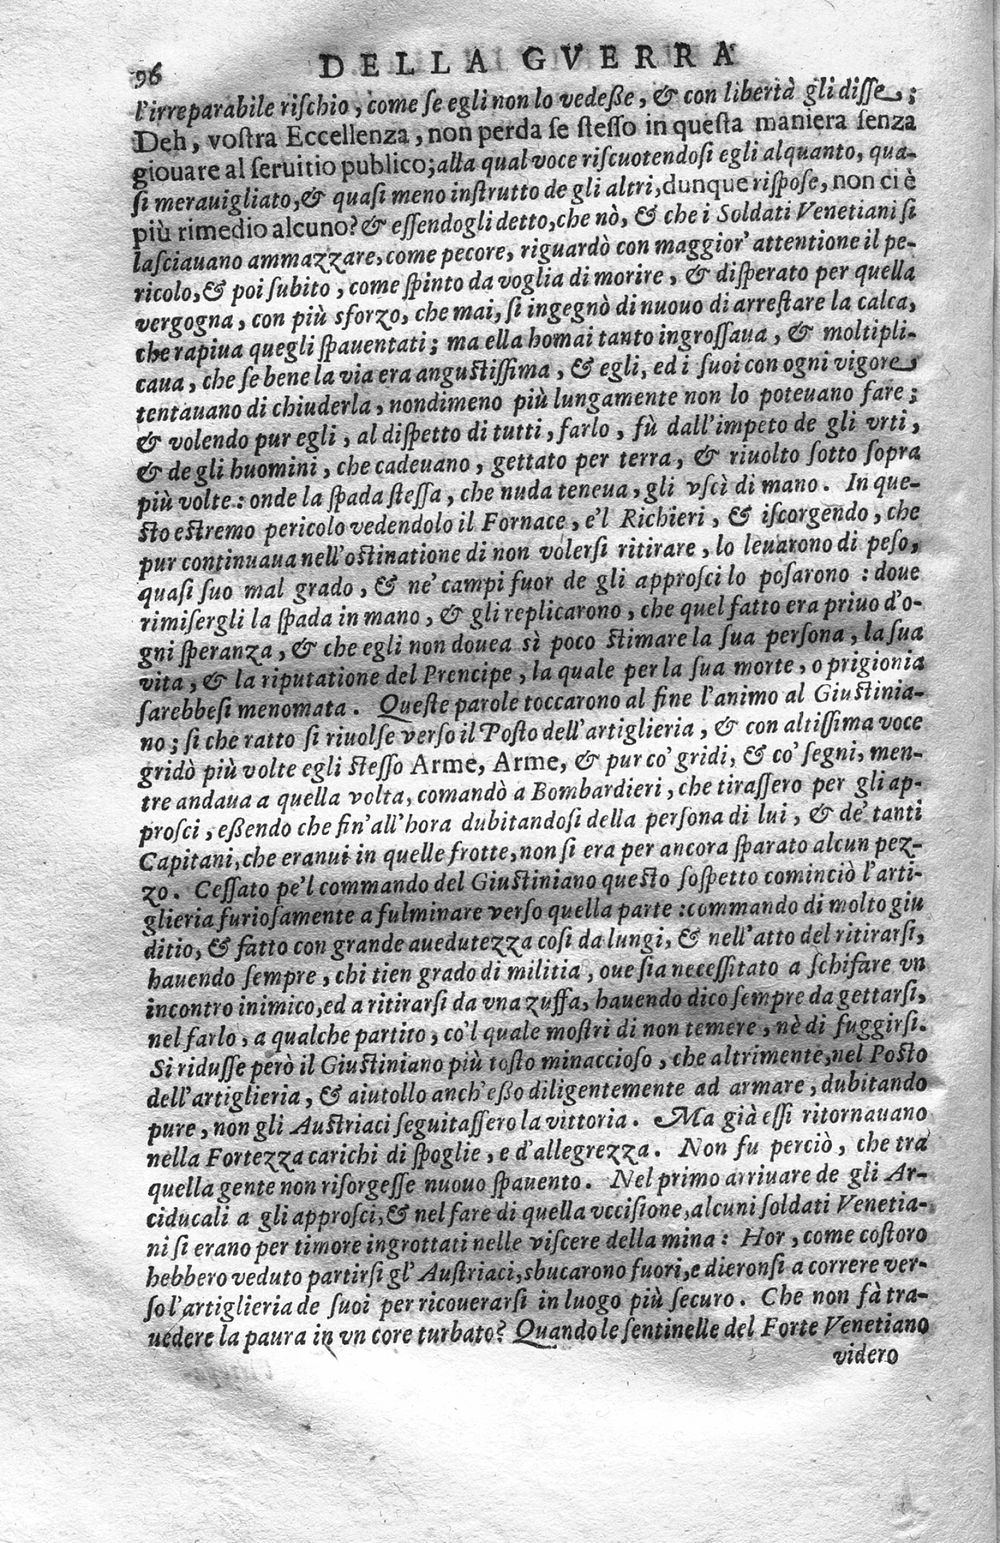 96 DELLA GVERRA
l'irreparabile rischio, come se egli non lo vedesse, & con libertà gli disse;
Deh, vostra Eccellenza, non perda se stesso in questa maniera senza
giouare al seruitio publico; alla qual voce riscuotendosi egli alquanto, qua-
si merauigliato, & quasi meno instrutto de gli altri, dunque rispose, non ci è
più rimedio alcuno? & essendogli detto, che nò, & che i Soldati Venetiani si
lasciauano ammazzare, come pecore, riguardò con maggior' attentione il pe-
ricolo, & poi subito, come spinto da voglia di morire, & disperato per quella
vergogna, con più sforzo, che mai, si ingegnò di nuouo di arrestare la calca,
che rapiua quegli spauentati; ma ella homai tanto ingrossaua, & moltipli-
caua, che se bene la via era angustissima, & egli, ed i suoi con ogni vigore
tentauano di chiuderla, nondimeno più lungamente non lo poteuano fare;
& volendo pur egli, al dispetto di tutti, farlo, fù dall'impeto de gli vrti,
& de gli huomini, che cadeuano, gettato per terra, & riuolto sotto sopra
più volte: onde la spada stessa, che nuda teneua, gli vscì di mano. In que-
sto estremo pericolo vedendolo il Fornace, e'l Richieri, & iscorgendo, che
pur continuaua nell'ostinatione di non volersi ritirare, lo leuarono di peso,
quasi suo mal grado, & ne' campi fuor de gli approsci lo posarono: doue
rimisergli la spada in mano, & gli replicarono, che quel fatto era priuo d'o-
gni speranza, & che egli non douea sì poco stimare la sua persona, la sua
vita, & la riputatione del Prencipe, la quale per la sua morte, o prigionia
sarebbesi menomata. Queste parole toccarono al fine l'animo al Giustinia-
no; si che ratto si riuolse verso il Posto dell'artiglieria, & con altissima voce
gridò più volte egli stesso Arme, Arme, & pur co' gridi, & co' segni, men-
tre andaua a quella volta, comandò a Bombardieri, che tirassero per gli ap-
prosci, essendo che fin'all'hora dubitandosi della persona di lui, & de' tanti
Capitani, che eranui in quelle frotte, non si era per ancora sparato alcun pez-
zo. Cessato pe'l commando del Giustiniano questo sospetto cominciò l'arti-
glieria furiosamente a fulminare verso quella parte: commando di molto giu
ditio, & fatto con grande auedutezza così da lungi, & nell'atto del ritirarsi,
hauendo sempre, chi tien grado di militia, oue sia necessitato a schifare vn
incontro inimico, ed a ritirarsi da vna zuffa, hauendo dico sempre da gettarsi,
nel farlo, a qualche partito, co'l quale mostri di non temere, nè di fuggirsi.
Si ridusse però il Giustiniano più tosto minaccioso, che altrimente, nel Posto
dell'artiglieria, & aiutollo anch'esso diligentemente ad armare, dubitando
pure, non gli Austriaci seguitassero la vittoria. Ma già essi ritornauano
nella Fortezza carichi di spoglie, e d'allegrezza. Non fu perciò, che tra
quella gente non risorgesse nuouo spauento. Nel primo arriuare de gli Ar-
ciducali a gli approsci, & nel fare di quella vccisione, alcuni soldati Venetia-
ni si erano per timore ingrottati nelle viscere della mina: Hor, come costoro
hebbero veduto partirsi gl' Austriaci, sbucarono fuori, e dieronsi a correre ver-
so l'artiglieria de suoi per ricouerarsi in luogo più securo. Che non fà tra-
uedere la paura in vn core turbato? Quando le sentinelle del Forte Venetiano
videro